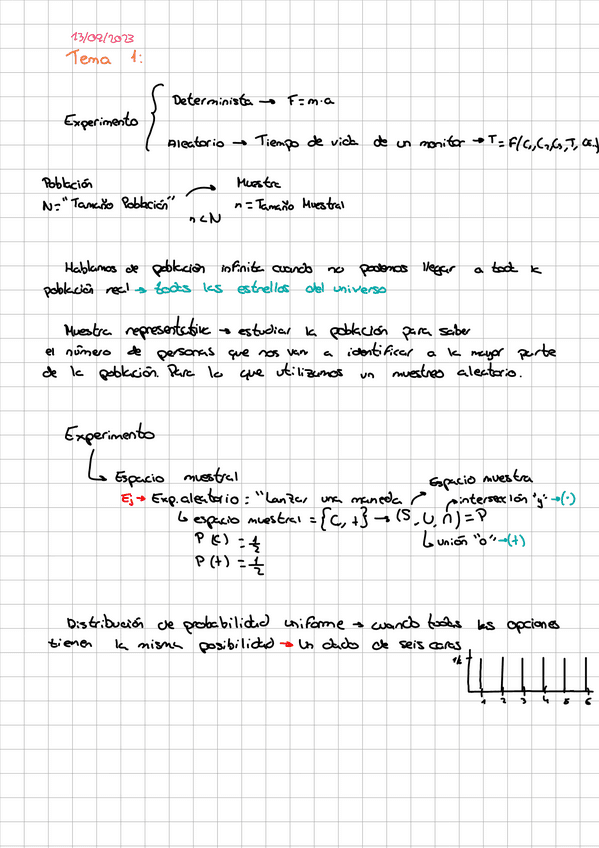 13/09/2023
Tema 1:
Determinista → F=m·a
Experimento
Aleatorio → Tiempo de vida de un monitor → T=F(C₁,C₂,C₃,T,
Población
Muestra
N="Tamaño Población"
n=Tamaño Muestral
n<N
Hablamos de población infinita cuando no podemos llegar a toda la
población real → todas las estrellas del universo
Muestra representativa → estudiar la población para saber
el número de personas que nos van a identificar a la mayor parte
de la población. Para lo que utilizamos un muestreo aleatorio.
Experimento
Espacio muestral
Espacio muestra
Ej → Exp.aleatorio: "Lanzar una moneda
intersección "y" → (·)
espacio muestral = {C, +} → (S, U, ∩) = P
P(C) = 1/2
unión "o" → (+)
P(+) = 1/2
Distribución de probabilidad uniforme → cuando todas las opciones
tienen la misma posibilidad → Un dado de seis caras
1/6
1 2 3 4 5 6